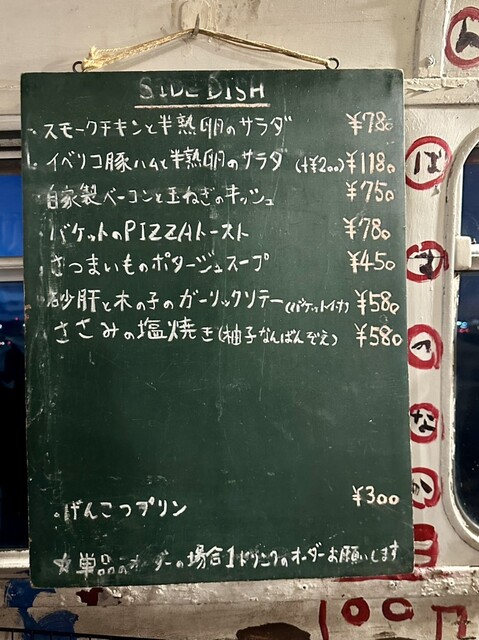 SIDE DISH
・スモークチキンと半熟卵のサラダ ¥780
・イベリコ豚ハムと半熟卵のサラダ (+¥200) ¥1180
・自家製ベーコンと玉ねぎのキッシュ ¥750
・バケットのPIZZAトースト ¥780
・さつまいものポタージュスープ ¥450
・砂肝と木の子のガーリックソテー(バケット付) ¥580
・ささみの塩焼き(柚子なんばんぞえ) ¥580
・げんこつプリン ¥300
☆単品のオーダーの場合1ドリンクのオーダーお願いします
ん
ば
お
つ
な